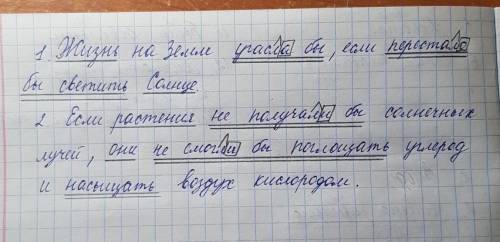 1. Жизнь на Земле угасла бы, если перестало
бы светить Солнце.
2. Если растения не получали бы солнечных
лучей, они не смогли бы поглощать углерод
и насыщать воздух кислородом.